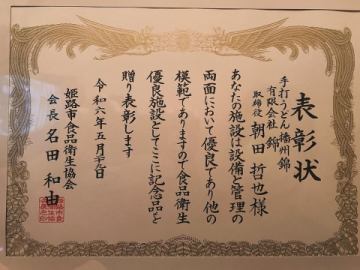 表彰状
手打うどん播州錦
有限会社 錦
取締役 朝田哲也様
あなたの施設は設備と管理の
両面において優良であり他の
模範でありますので食品衛生
優良施設としてここに記念品を
贈り表彰します
令和六年五月
姫路市食品衛生協会
会長 名田和由